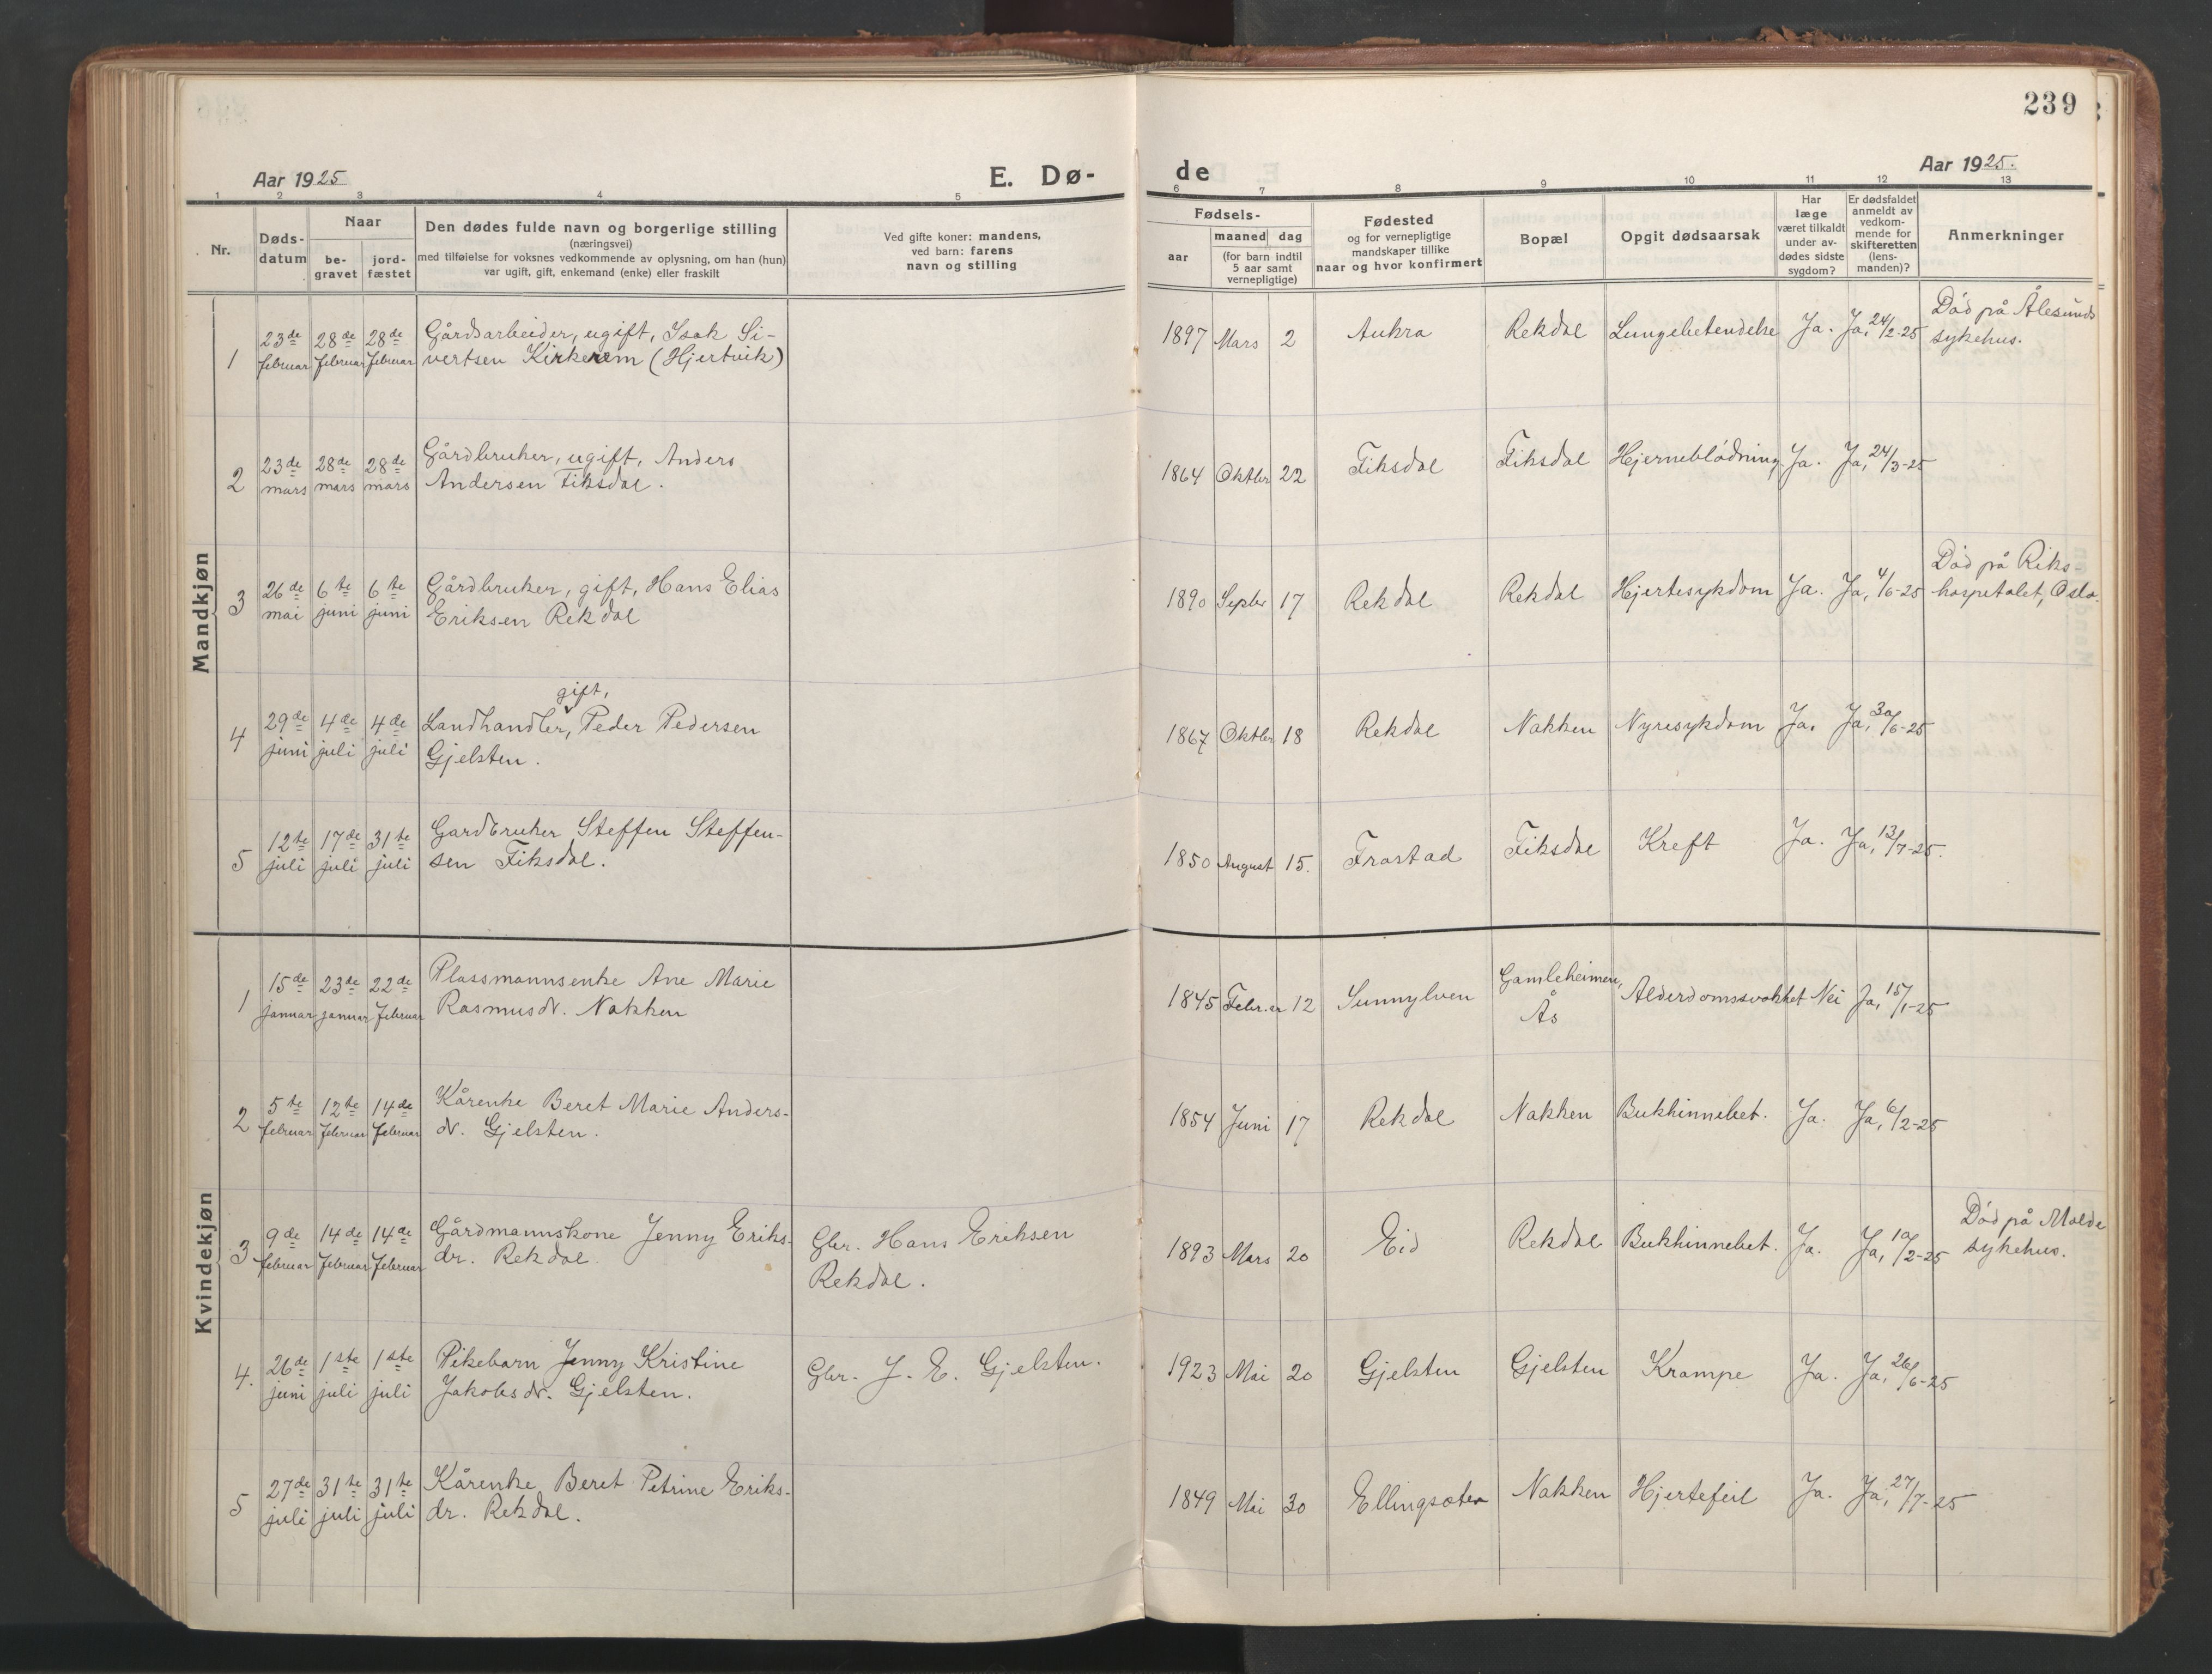 239
Aar 1925
E. Dø-
de
Aar 1925.
1 2 3 4 5 6 7 8 9 10 11 12 13
Nr.
Døds-
datum
Naar
be-
gravet
jord-
fæstet
Den dødes fulde navn og borgerlige stilling
(næringsvei)
med tilføielse for voksnes vedkommende av oplysning, om han (hun)
var ugift, gift, enkemand (enke) eller fraskilt
Ved gifte koner: mandens,
ved barn: farens
navn og stilling
Fødsels-
aar
maaned dag
(for barn indtil
5 aar samt
vernepligtige)
Fødested
og for vernepligtige
mandskaper tillike
naar og hvor konfirmert
Bopæl
Opgit dødsaarsak
Har
læge
været tilkaldt
under av-
dødes sidste
sygdom?
Er dødsfaldet
anmeldt av
vedkom-
mende for
skifteretten
(lens-
manden)?
Anmerkninger
Mandkjøn
1
23de
februar
28de
februar
28de
februar
Gårdsarbeider, ugift, Isak Si-
vertsen Kirkerem (Hjertvik)
1897 Mars 2
Aukra
Rekdal
Lungebetendelse
Ja.
Ja, 24/2-25
Död på Ålesunds
sykehus.
2
23de
mars
28de
mars
28de
mars
Gårdbruker, ugift, Anders
Andersen Fiksdal.
1864 Oktbr 22
Fiksdal
Fiksdal
Hjerneblödning
Ja.
Ja, 24/3-25
3
26de
mai
6te
juni
6te
juni
Gårdbruker, gift, Hans Elias
Eriksen Rekdal
1890 Septbr 17
Rekdal
Rekdal
Hjertesykdom
Ja.
Ja, 4/6-25
Död på Riks-
hospetalet, Oslo.
4
29de
juni
4de
juli
4de
juli
gift,
Landhandler, Peder Pedersen
Gjelsten.
1867 Oktbr 18
Rekdal
Nakken
Nyresykdom
Ja.
Ja, 30/6-25
5
12te
juli
17de
juli
31te
juli
Gardbruker Steffen Steffen-
sen Fiksdal.
1850 August 15.
Frostad
Fiksdal
Kreft
Ja.
Ja, 13/7-25.
Kvindekjøn
1
15de
januar
23de
januar
22de
februar
Plassmannsenke Ane Marie
Rasmusdr. Nakken
1845 Febr.ar 12
Sunnylven
Gamleheimen,
Ås
Alderdomssvakhet
Nei
Ja, 15/1-25
2
5te
februar
12te
februar
14de
februar
Kårenke Beret Marie Anders-
dr. Gjelsten.
1854 Juni 17
Rekdal
Nakken
Bukhinnebet.
Ja.
Ja, 6/2-25
3
9de
februar
14de
februar
14de
februar
Gårdmannskone Jenny Eriks-
dr. Rekdal.
Gbr. Hans Eriksen
Rekdal.
1893 Mars 20
Eid
Rekdal
Bukhinnebet.
Ja.
Ja, 10/2-25
Död på Molde
sykehus.
4.
26de
juni
1ste
juli
1ste
juli
Pikebarn Jenny Kristine
Jakobsdr. Gjelsten.
Gbr. J. E. Gjelsten.
1923 Mai 20
Gjelsten
Gjelsten
Krampe
Ja.
Ja, 26/6-25
5
27de
juli
31te
juli
31te
juli
Kårenke Beret Petrine Eriks-
dr. Rekdal.
1849 Mai 30
Ellingsøter
Nakken
Hjertefeil
Ja.
Ja, 27/7-25